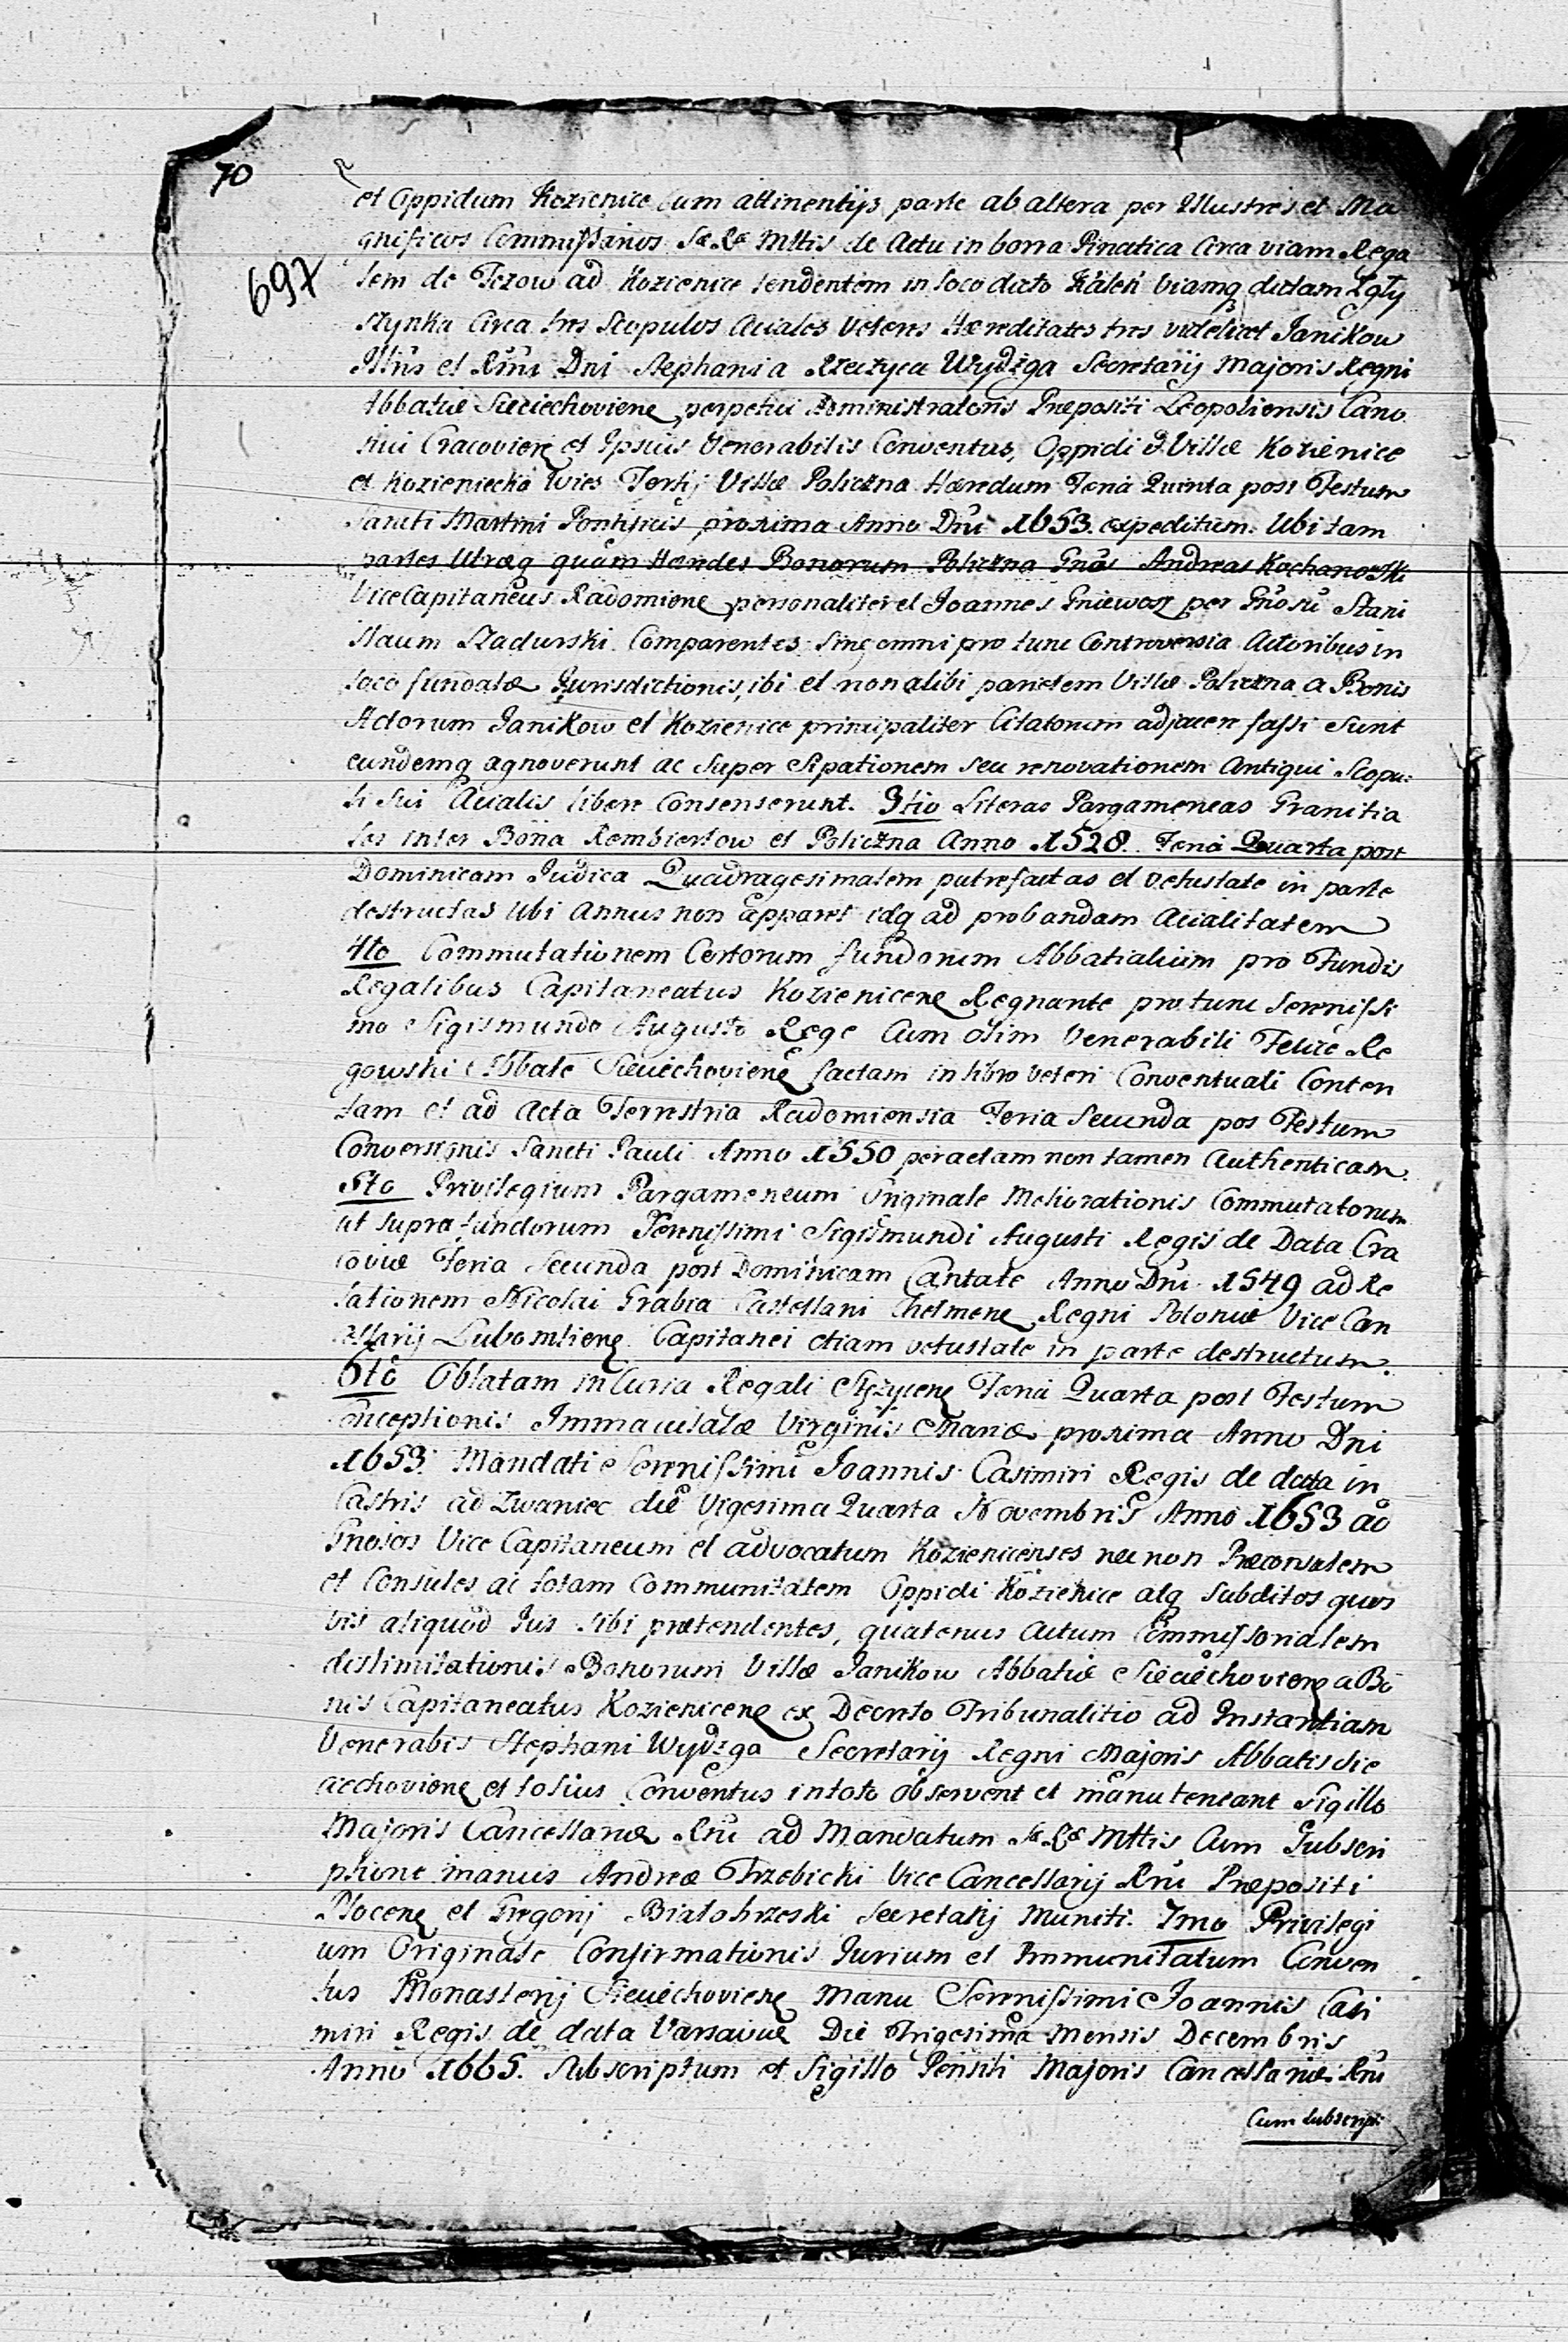 70
697
et Oppidum Kozienice cum attinentijs parte ab altera per Illustres et Ma
gnificos Commissarios Sæ Ræ Mttis de Actu in borra Pinatica circa viam Rega
lem de Jezow ad Kozienice tendentem in loco dicto Kaleń viamq dictam
circa tres Scopulos Aciales Veteris Hæreditates tres videlicet Janikow
Illris et Rmi Dni Stephani a Rzeczyca Wydżga Secretarij Majoris Regni
Abbatiæ Sieciechoviene perpetui Administratoris Præpositi Leopoliensis Cano
nici Cracoviene et Ipsius Venerabilis Conventus, Oppidi & Villæ Kozienice
et Kozieniecka Wies Tertij Villæ Policzna Hæredum Feria Quinta post Festum
Sancti Martini Pontificis proxima Anno Dni 1653. expeditum. Ubi tam
partes Utræq quam Hæredes Bonorum Policzna Gnãs Andreas Kochanowski
ViceCapitaneus Radomiene personaliter et Joannes Gniewosz per Gnosũ Stani
slaum Szadurski Comparentes sine omni pro tunc Controversia Actoribus in
loco fundatæ Jurisdictionis, ibi et non alibi parietem Villæ Policzna a Bonis
Actorum Janikow et Kozienice principaliter Citatorum adjacere fassi sunt
eundemq agnoverunt ac super Sipationem seu renovationem Antiqui Scopu:
li sui Acialis libere Consenserunt. 3tio Literas Pargameneas Granitia
les inter Bona Rembiertow et Policzna Anno 1528. Feria Quarta post
Dominicam Judica Quadragesimalem putrefactas et vetustate in parte
destructas Ubi Annus non apparet idq ad probandam Acialitatem
4to Commutationem Certorum fundorum Abbatialium pro Fundis
Regalibus Capitaneatus Kozienicene Regnante pro tunc Serenissi
mo Sigismundo Augusto Rege Cum olim Venerabili Felice Re
gowski Abbate Sieciechoviene factam in libro veteri Conventuali Conten
tam et ad Acta Terrestria Radomiensia Feria Secunda pos Festum
Conversionis Sancti Pauli Anno 1550 peractam non tamen Authenticam.
5to Privilegium Pargameneum Originale Meliorationis Commutatorum
ut supra fundorum Serenissimi Sigismundi Augusti Regis de Data Cra
coviæ Feria Secunda post Dominicam Cantate Anno Dni 1549 ad Re
lationem Nicolai Grabia Castellani Chelmene Regni Poloniæ Vice Can
cellarij Lubomliene Capitanei etiam vetustate in parte destructum.
6to Oblatam in Curia Regali Stężycene Feria Quarta post Festum
Conceptionis Immaculatæ Virginis Mariæ proxima Anno Dni
1653. Mandati Serenissimi Joannis Casimiri Regis de data in
Castris ad Zwaniec die Vigesima Quarta Novembris Anno 1653 ad
Gnosos Vice Capitaneum et advocatum Kozienicenses nec non Præconsulem
et Consules ac totam Communitatem Oppidi Kozienice atq Subditos quos
vis aliquod Jus sibi prætendentes, quatenus Actum Commissorialem
dislimitationis Bonorum Villæ Janikow Abbatiæ Sieciechoviene a Bo
nis Capitaneatus Kozienicene ex Decreto Tribunalitio ad Instantiam
Venerabis Stephani Wydżga Secretarij Regni Majoris Abbatis Sie
ciechoviene et totius Conventus in toto observent et manuteneant Sigillo
Majoris Cancellariæ Rni ad Mandatum Sæ Ræ Mttis Cum Subscri
ptione manus Andreæ Trzebicki Vice Cancellarij Rni Præpositi
Plocene et Gregorij Białobrzeski Secretarij Muniti. 7mo Privilegi
um Originale Confirmationis Jurium et Immunitatum Conven
tus Monasterij Sieciechoviene Manu Serenissimi Joannis Casi
miri Regis de data Varsaviæ Die Trigesima Mensis Decembris
Anno 1665. Subscriptum et Sigillo Pensili Majoris Cancellariæ Rni
Cum Subscript: